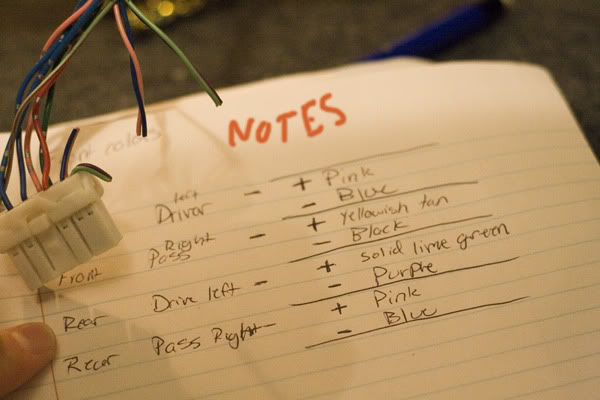 NOTES
Left
Driver - + Pink
- Blue
Right
Pass - + Yellowish tan
- Black
Front
Rear Drive left - + solid lime green
- Purple
Rear Pass Right - + Pink
- Blue